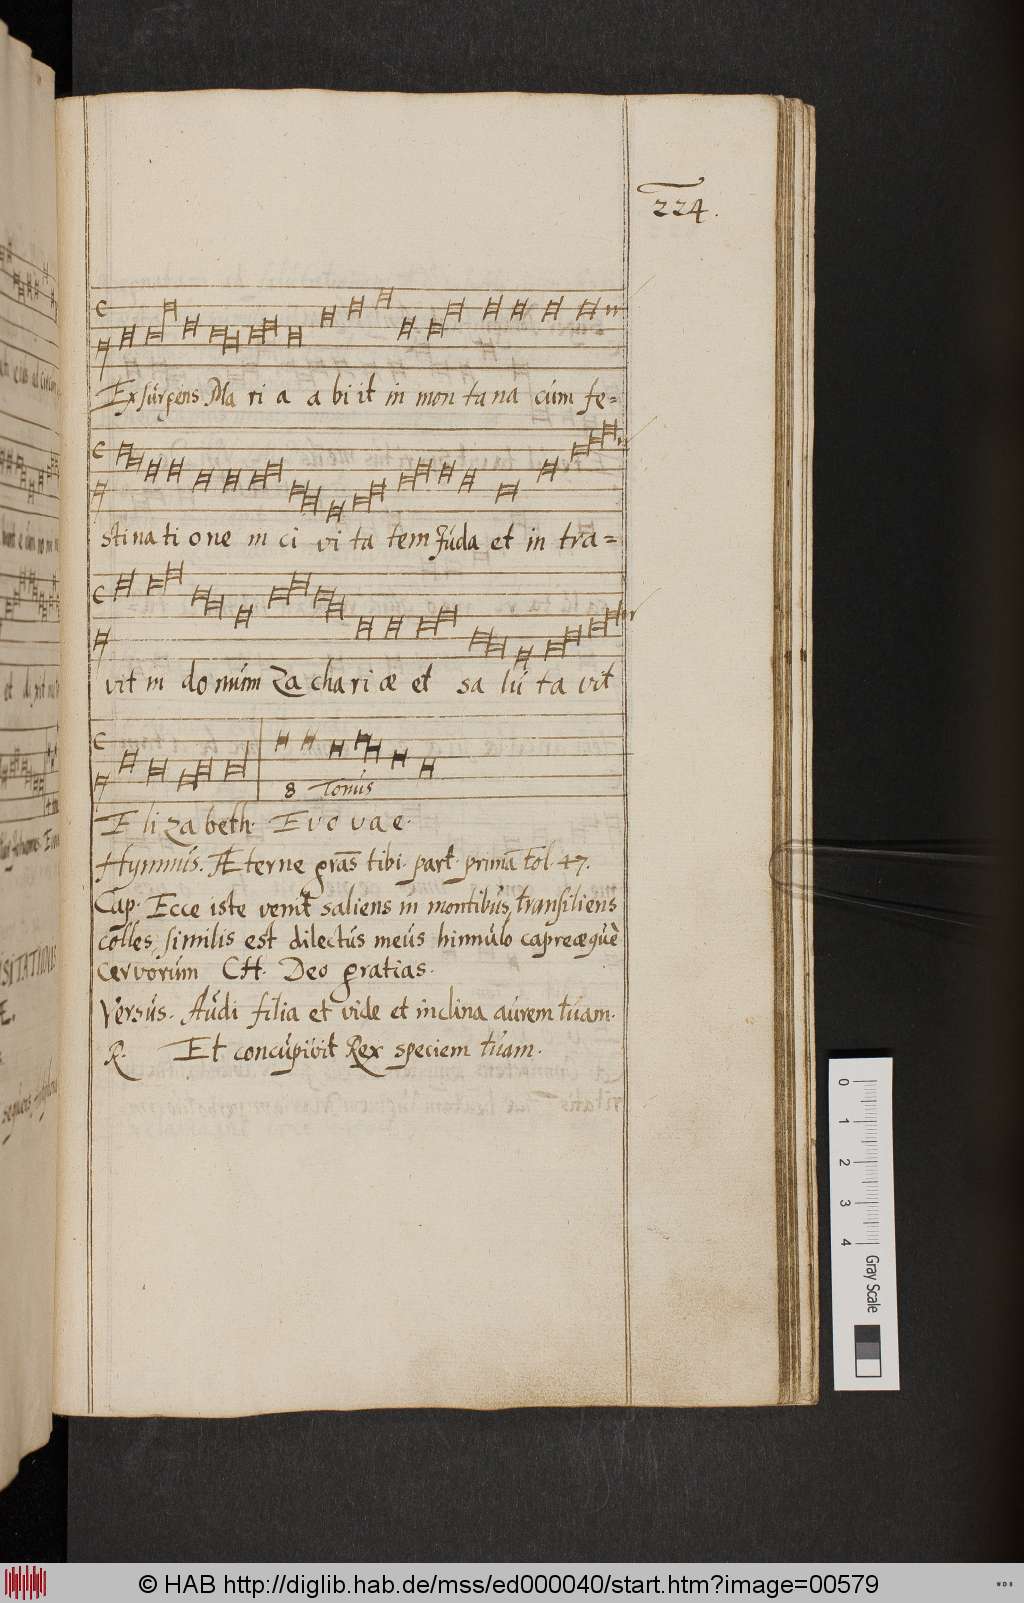 224.
Exsurgens Ma ri a a bi it in mon ta na cùm fe=
sti na ti o ne in ci vi ta tem Júda et in tra=
vit in do mum Za cha ri æ et sa lú ta vit
8 Tonús
E li za beth. E v o v a e.
Hymnús. Æterne gras tibi. part. prima fol. 47.
Cap. Ecce iste venit saliens in montibús, transiliens
colles, similis est dilectús meús hinnúlo capreæqúè
cervorúm CH. Deo gratias.
Versús. Aúdi filia et vide et inclina aúrem túam.
R. Et concúpivit Rex speciem túam.
SITATIONIS
Æ.
0 1 2 3 4
Gray Scale
© HAB http://diglib.hab.de/mss/ed000040/start.htm?image=00579